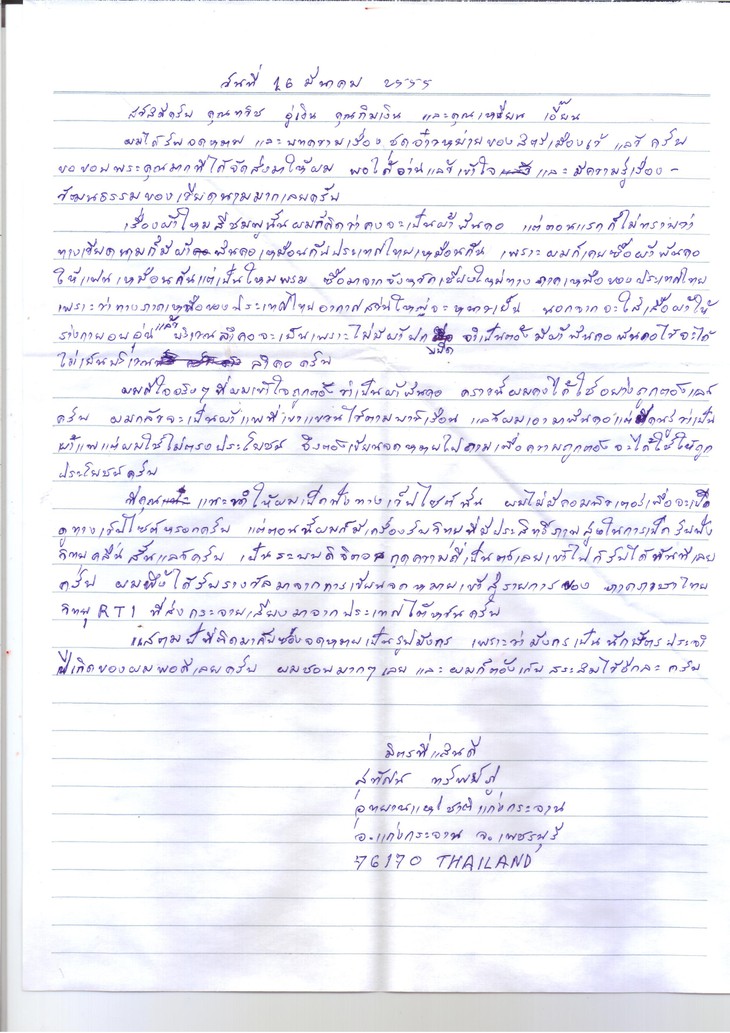 วันที่ 16 มีนาคม ๒๕๕๕
สวัสดีครับ คุณทวิช อู่เงิน คุณกิมเงิน และคุณเหวียน เอี๊ยน
ผมได้รับจดหมาย และบทความเรื่อง ชุดอ๋าวหย่ายของสตรีเมืองเว้ แล้ว ครับ
ขอขอบพระคุณมากที่ได้จัดส่งมาให้ผม พอได้อ่านแล้วเข้าใจ และ มีความรู้เรื่อง –
วัฒนธรรมของเวียดนามมากเลยครับ
เรื่องผ้าไหมสีชมพูนั้นผมก็คิดว่าคงจะเป็นผ้าพันคอ แต่ตอนแรกก็ไม่ทราบว่า
ทางเวียดนามก็มีผ้าพันคอเหมือนกับประเทศไทยเหมือนกัน เพราะผมก็เคยซื้อผ้าพันคอ
ให้แฟนเหมือนกันแต่เป็นไหมพรม ซื้อมาจากจังหวัดเชียงใหม่ทาง ภาคเหนือของประเทศไทย
เพราะว่าทางภาคเหนือของประเทศไทยอากาศส่วนใหญ่จะหนาวเย็น นอกจากจะใส่เสื้อผ้าให้
ร่างกายอบอุ่นแล้วบริเวณลำคอจะเย็นเพราะไม่มีผ้าปกปิด จึงเป็นต้องมีผ้าพันคอพันคอไว้จะได้
ไม่เย็นบริเวณ ลำคอ ครับ
ผมดีใจจริงๆ ที่ผมเข้าใจถูกต้องว่าเป็นผ้าพันคอ คราวนี้ผมคงได้ใช้อย่างถูกต้องแล้ว
ครับ ผมกลัวจะเป็นผ้าแพที่เขาแขวนไว้ตามบ้านเรือน แล้วผมเอามาพันคอ
ผ้าแพแต่ผมใช้ไม่ตรงประโยชน์ จึงต้องเขียนจดหมายไปถามเพื่อความถูกต้อง จะได้ใช้ให้ถูก
ประโยชน์ครับ
ที่คุณ แนะนำให้ผมเปิดฟังทางเว็บไซต์นั้น ผมไม่มีคอมพิวเตอร์เพื่อจะเปิด
ดูทางเว็บไซต์หรอกครับ แต่ตอนนี้ผมก็มีเครื่องรับวิทยุที่มีประสิทธิภาพสูงในการเปิดรับฟัง
วิทยุคลื่นสั้นแล้วครับ เป็นระบบดิจิตอล กดความถี่เป็นตัวเลขเข้าไปก็รับได้ทันทีเลย
ครับ ผมพึ่งได้รับรางวัลมาจากการเขียนจดหมายเข้าสู่รายการของ ภาคภาษาไทย
วิทยุ RTI ที่ส่งกระจายเสียงมาจากประเทศไต้หวันครับ
แสตมป์ที่ติดมากับซองจดหมายเป็นรูปมังกร เพราะว่ามังกรเป็นนักษัตรประจำ
ปีเกิดของผมพอดีเลยครับ ผมชอบมากๆ เลย และผมก็ต้องเก็บสะสมไว้อีกละครับ
มิตรที่แสนดี
สุทัศน์ ทรัพย์ภู่
อุทยานแห่งชาติแก่งกระจาน
อ.แก่งกระจาน จ.เพชรบุรี
76170 THAILAND